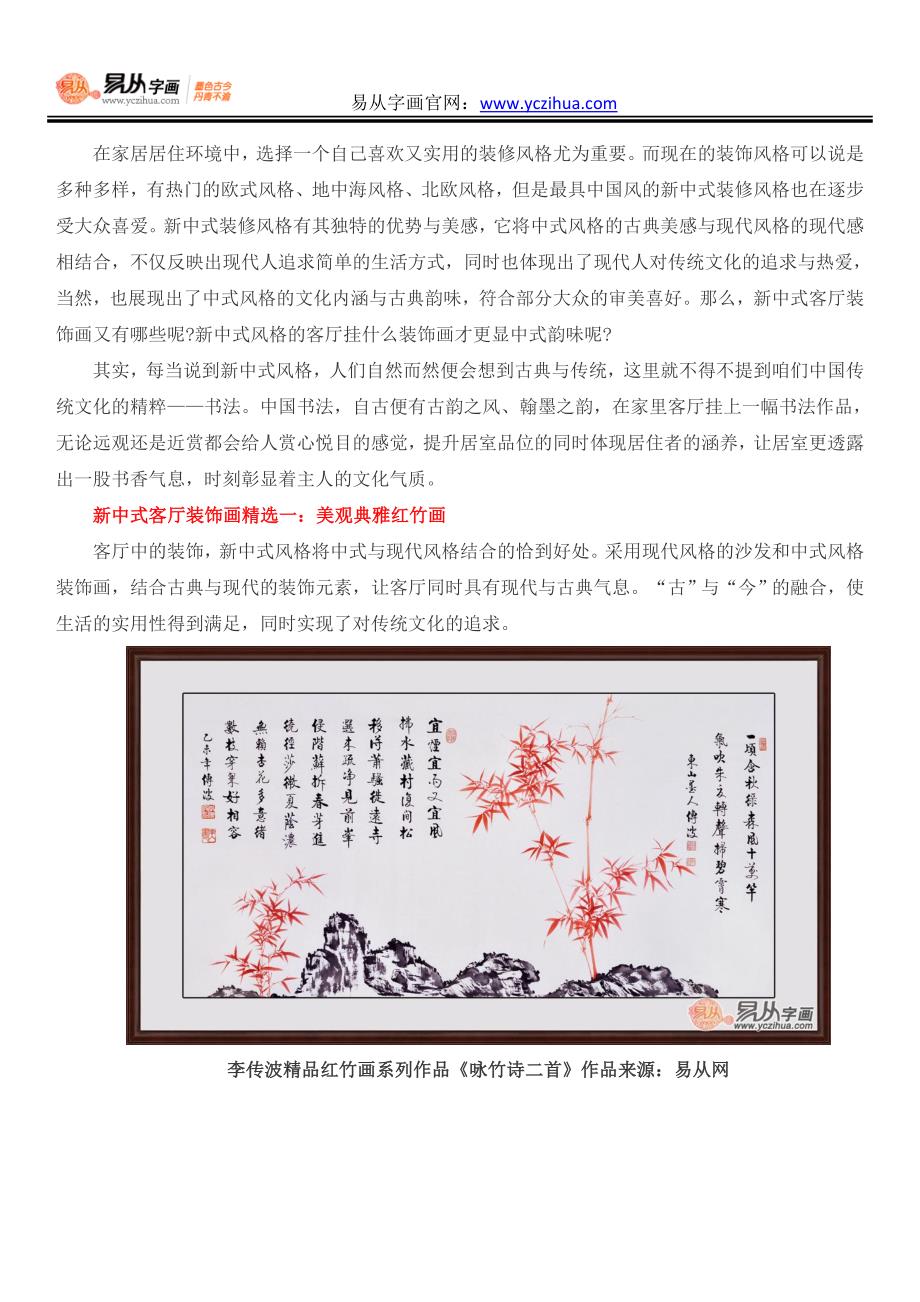 易从 易从字画 墨色古今
www.yczihua.com 丹青不渝
易从字画官网：www.yczihua.com
在家居居住环境中，选择一个自己喜欢又实用的装修风格尤为重要。而现在的装饰风格可以说是
多种多样，有热门的欧式风格、地中海风格、北欧风格，但是最具中国风的新中式装修风格也在逐步
受大众喜爱。新中式装修风格有其独特的优势与美感，它将中式风格的古典美感与现代风格的现代感
相结合，不仅反映出现代人追求简单的生活方式，同时也体现出了现代人对传统文化的追求与热爱，
当然，也展现出了中式风格的文化内涵与古典韵味，符合部分大众的审美喜好。那么，新中式客厅装
饰画又有哪些呢?新中式风格的客厅挂什么装饰画才更显中式韵味呢?
其实，每当说到新中式风格，人们自然而然便会想到古典与传统，这里就不得不提到咱们中国传
统文化的精粹——书法。中国书法，自古便有古韵之风、翰墨之韵，在家里客厅挂上一幅书法作品，
无论远观还是近赏都会给人赏心悦目的感觉，提升居室品位的同时体现居住者的涵养，让居室更透露
出一股书香气息，时刻彰显着主人的文化气质。
新中式客厅装饰画精选一：美观典雅红竹画
客厅中的装饰，新中式风格将中式与现代风格结合的恰到好处。采用现代风格的沙发和中式风格
装饰画，结合古典与现代的装饰元素，让客厅同时具有现代与古典气息。“古”与“今”的融合，使
生活的实用性得到满足，同时实现了对传统文化的追求。
一顷含秋绿森风十萬竿
氣吹朱夏轉聲掃碧霄寒
東山墨人傳波
宜煙宜雨又宜風
拂水藏村復间松
移得蕭騷從遠寺
選来疎净見前峯
侵階蘚拆春芽迸
繞徑莎微夏蔭濃
無賴杏花多意緒
數枝穿翠好相容
乙未年傳波
易从 易从字画
www.yczihua.com
李传波精品红竹画系列作品《咏竹诗二首》作品来源：易从网